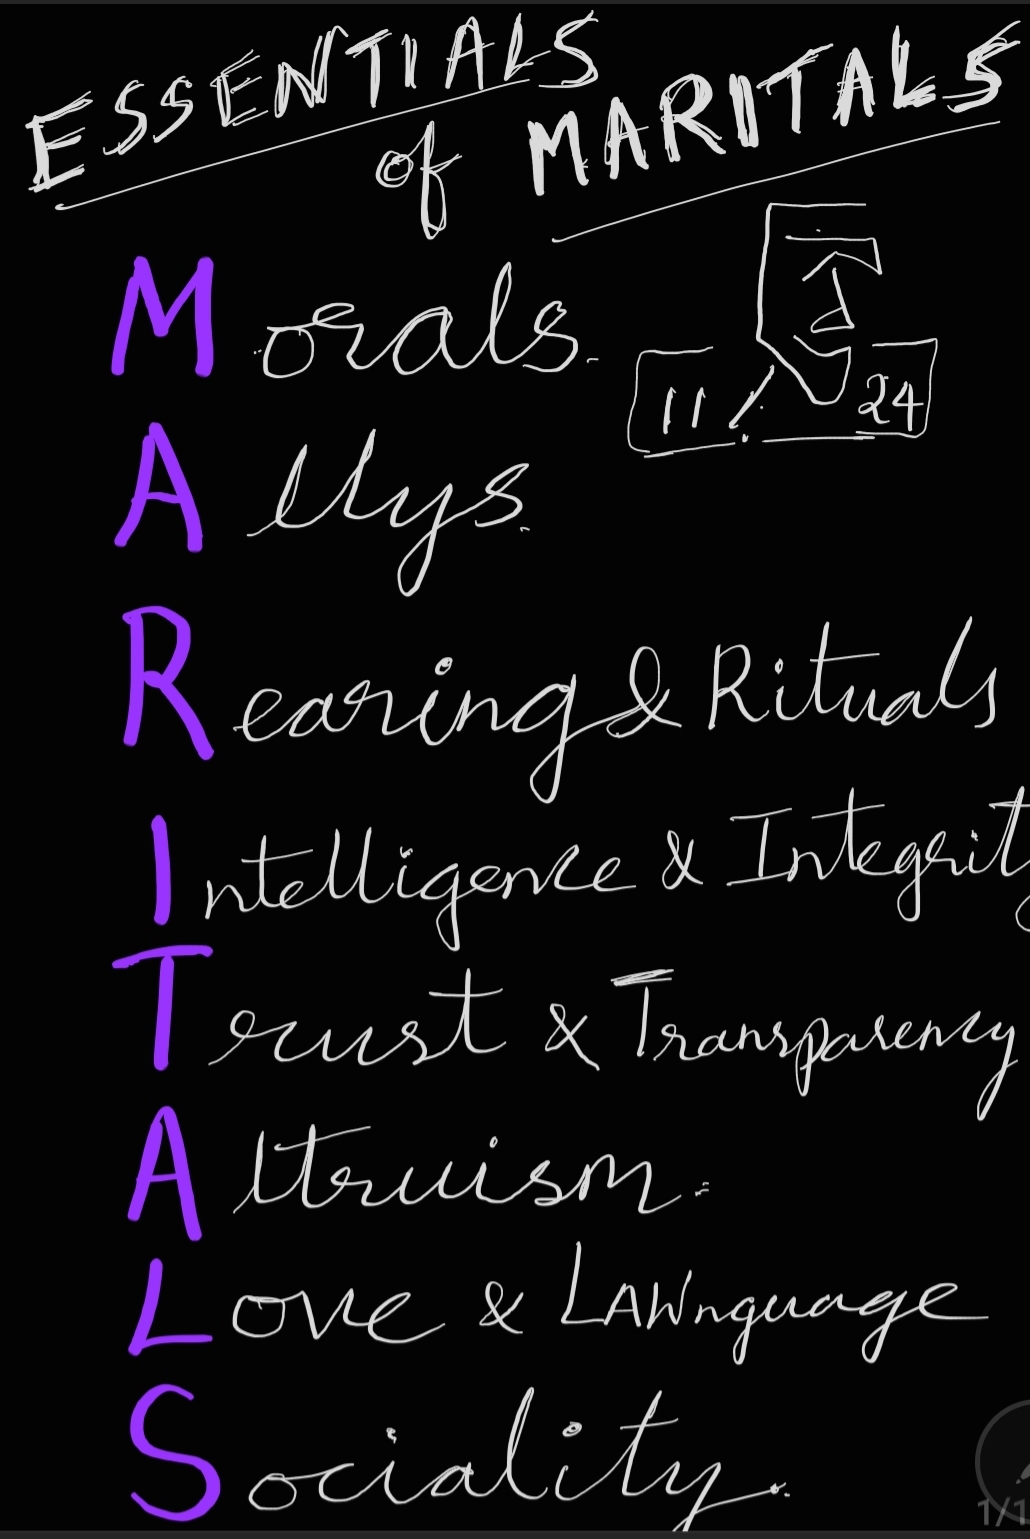 ESSENTIALS
of MARITALS
Morals.
11 24
Allys.
Rearing & Rituals
Intelligence & Integrit
Trust & Transparency
Altruism.
Love & LAWnguage
Sociality.
1/1